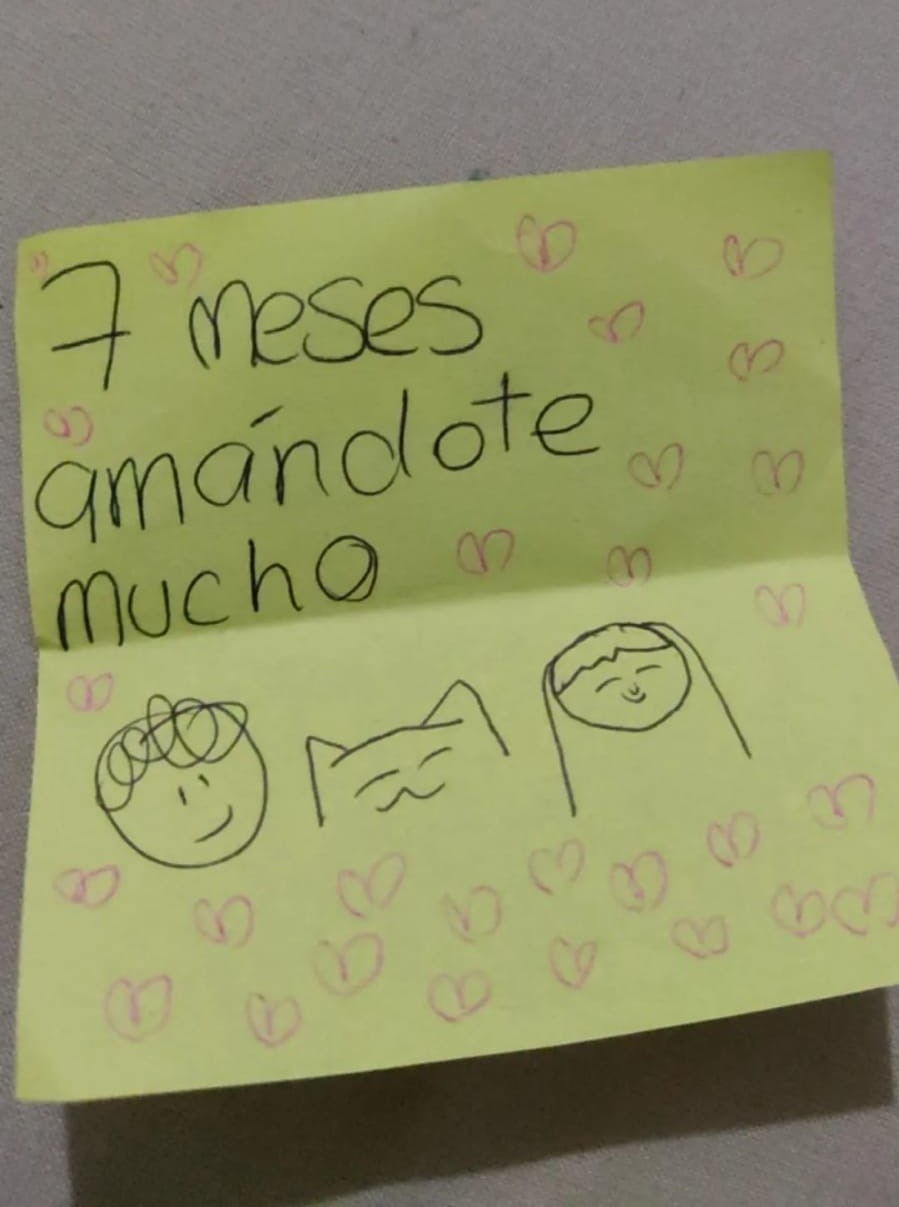 7 meses
amándote
mucho